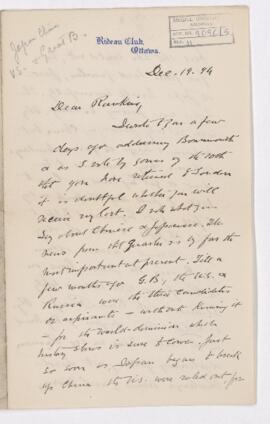 Japan China
US. + Great B.
Rideau Club,
Ottawa.
Dec. 19. 94
Dear Rawkins,
I wrote you a few
days ago, addressing Bournemouth
& as I note by yours of the 10th
that you have returned to London
it is doubtful whether you will
receive my last. I note what you
say about Chinese & Japanese. The
news from that Quarter is by far the
most important at present. Till a
few months ago G.B., the U.S. &
Russia were the three candidates
or aspirants – without knowing it
– for the world-dominion which
history shows is sure to come. Just
so soon as Japan began to break
up China the U.S. were ruled out for